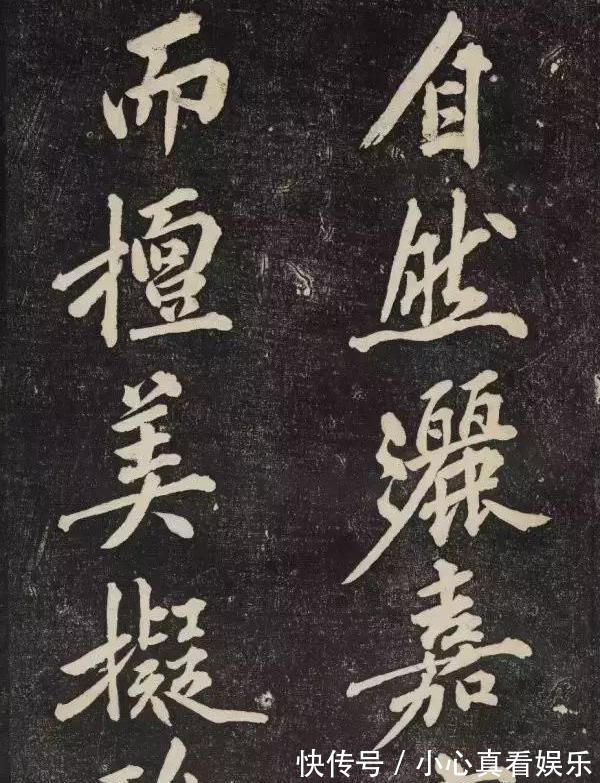 自然灑嘉
而擅美擬
快传号 / 小心真看娱乐